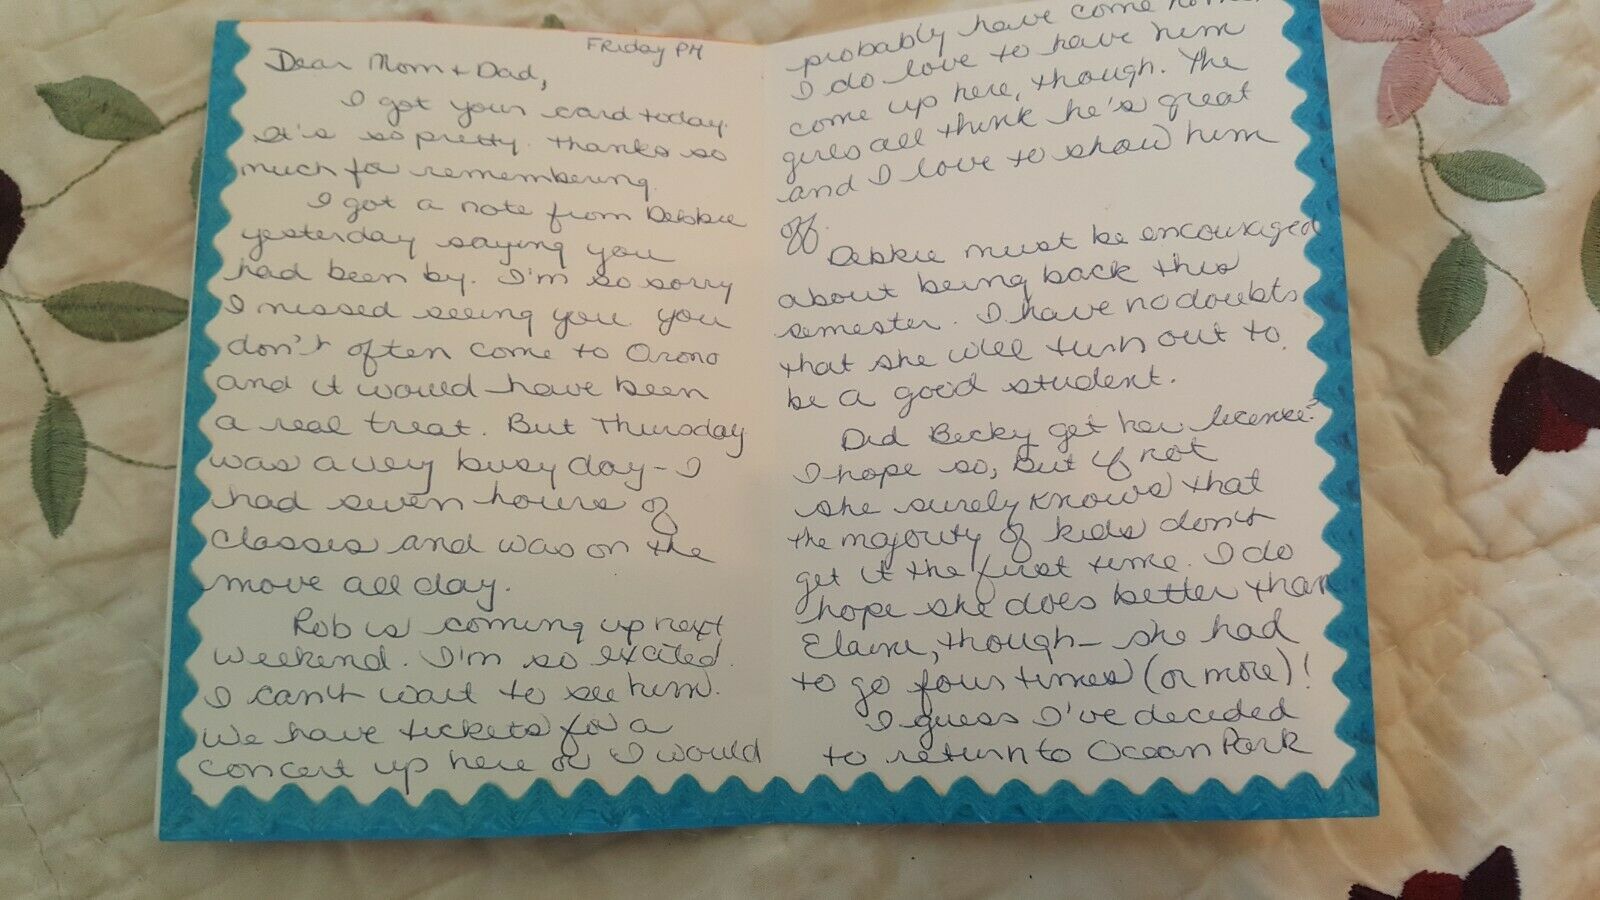 Friday PM
Dear Mom + Dad,
I got your card today.
It's so pretty. thanks so
much for remembering.
I got a note from Debbie
yesterday saying you
had been by. I'm so sorry
I missed seeing you. you
don't often come to Orono
and it would have been
a real treat. But Thursday
was a very busy day - I
had seven hours of
classes and was on the
move all day.
Rob is coming up next
weekend. I'm so excited.
I can't wait to see him.
We have tickets for a
concert up here or I would
probably have come home.
I do love to have him
come up here, though. The
girls all think he's great
and I love to show him
off.
Debbie must be encouraged
about being back this
semester. I have no doubts
that she will turn out to
be a good student.
Did Becky get her license?
I hope so, but if not
she surely knows that
the majority of kids don't
get it the first time. I do
hope she does better than
Elaine, though - she had
to go four times (or more)!
I guess I've decided
to return to Ocean Park